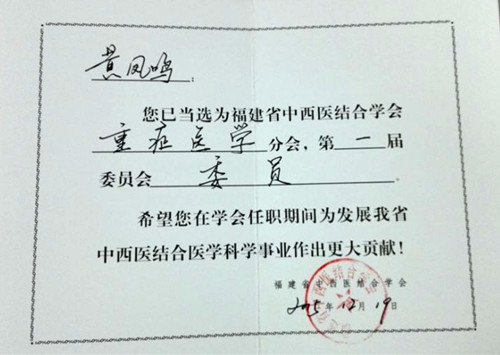 黄凤鸣：
您已当选为福建省中西医结合学会
重症医学分会，第一届
委员会委员。
希望您在学会任职期间为发展我省
中西医结合医学科学事业作出更大贡献！
福建省中西医结合学会
2015年12月19日